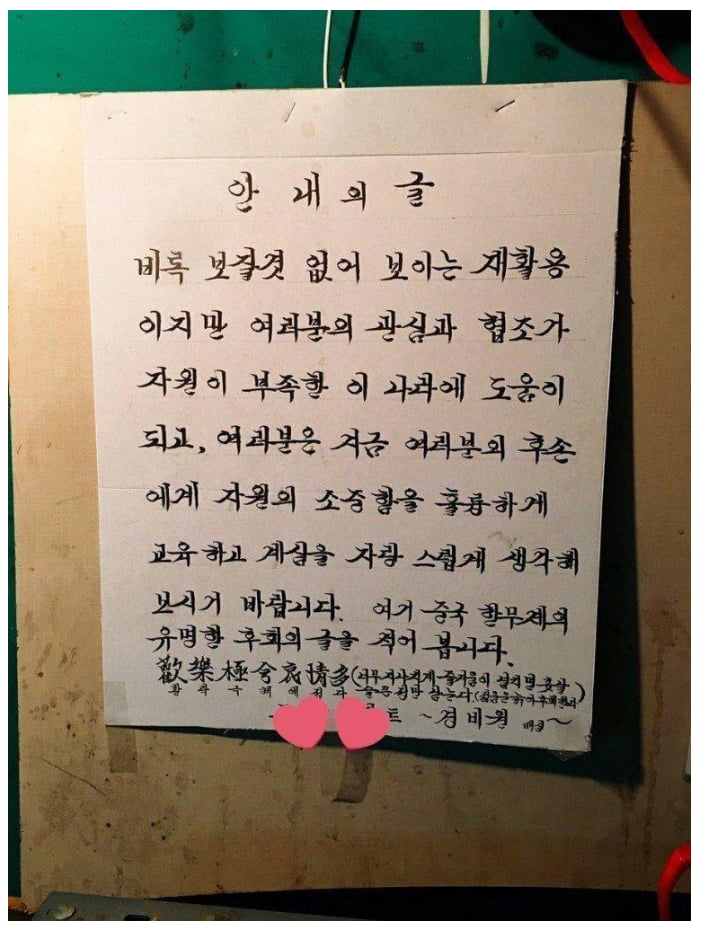 안내의 글
비록 보잘것 없어 보이는 재활용
이지만 여러분의 관심과 협조가
자원이 부족한 이 나라에 도움이
되고, 여러분은 지금 여러분의 후손
에게 자원의 소중함을 훌륭하게
교육하고 계심을 자랑스럽게 생각해
보시기 바랍니다. 여기 중국 한무제의
유명한 후회의 글을 적어 봅니다.
歡樂極兮哀情多(너무 지나치게 즐거움이 넘치면 훗날
환락극혜애정다 슬픈 정만 남는다.
트 ~경비원 ~